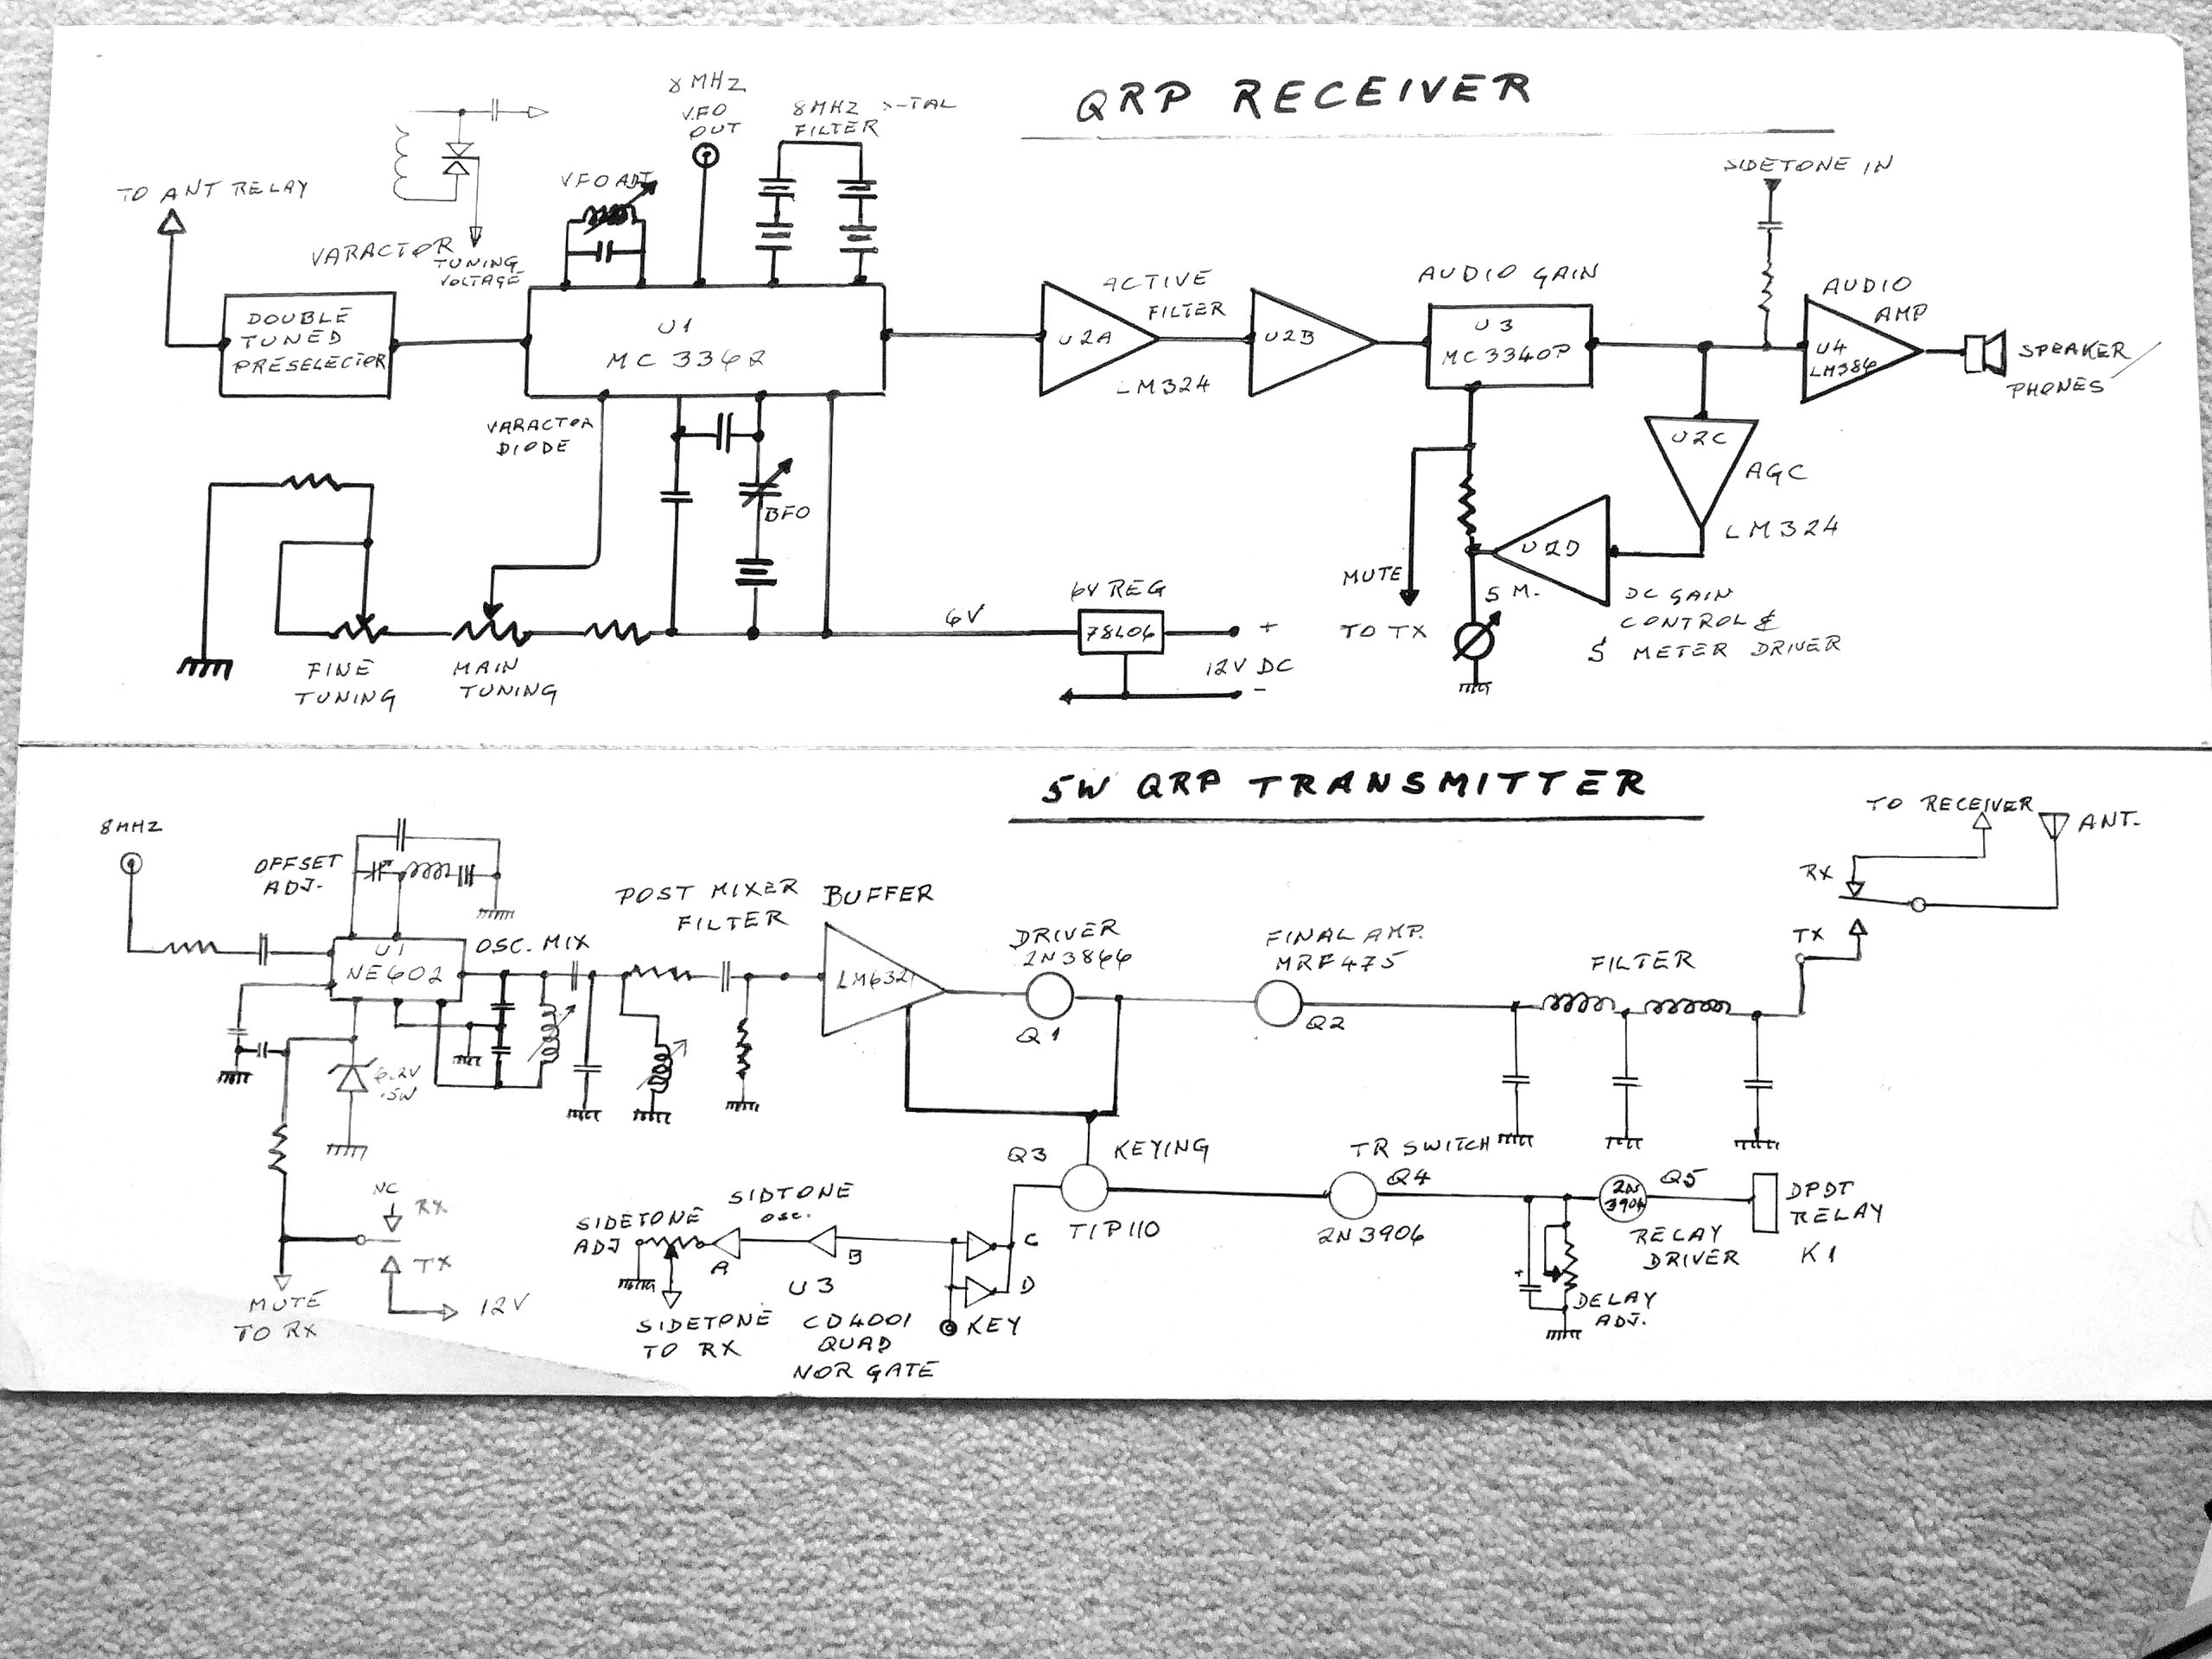 QRP RECEIVER
8 MHZ
VFO
OUT
8 MHZ X-TAL
FILTER
VFO ADJ
TO ANT RELAY
VARACTOR
TUNING
VOLTAGE
DOUBLE
TUNED
PRESELECTOR
U1
MC 3362
VARACTOR
DIODE
BFO
FINE
TUNING
MAIN
TUNING
6V
6V REG
78L06
+
12V DC
-
ACTIVE
FILTER
U2A
LM324
U2B
AUDIO GAIN
U3
MC3340P
SIDETONE IN
AUDIO
AMP
U4
LM386
SPEAKER /
PHONES
U2C
AGC
LM324
U2D
MUTE
TO TX
S M.
DC GAIN
CONTROL &
S METER DRIVER
5W QRP TRANSMITTER
8MHZ
OFFSET
ADJ.
U1
NE602
OSC. MIX
6.2V
.5W
POST MIXER
FILTER
BUFFER
LM6321
DRIVER
2N3866
Q1
FINAL AMP.
MRF475
Q2
FILTER
TO RECEIVER
ANT.
RX
TX
NC
RX
TX
12V
MUTE
TO RX
SIDETONE
ADJ
SIDTONE
OSC.
A
B
U3
CD4001
QUAD
NOR GATE
SIDETONE
TO RX
C
D
KEY
Q3
KEYING
TIP110
TR SWITCH
Q4
2N3906
2N
3904
Q5
RELAY
DRIVER
DPDT
RELAY
K1
+
DELAY
ADJ.